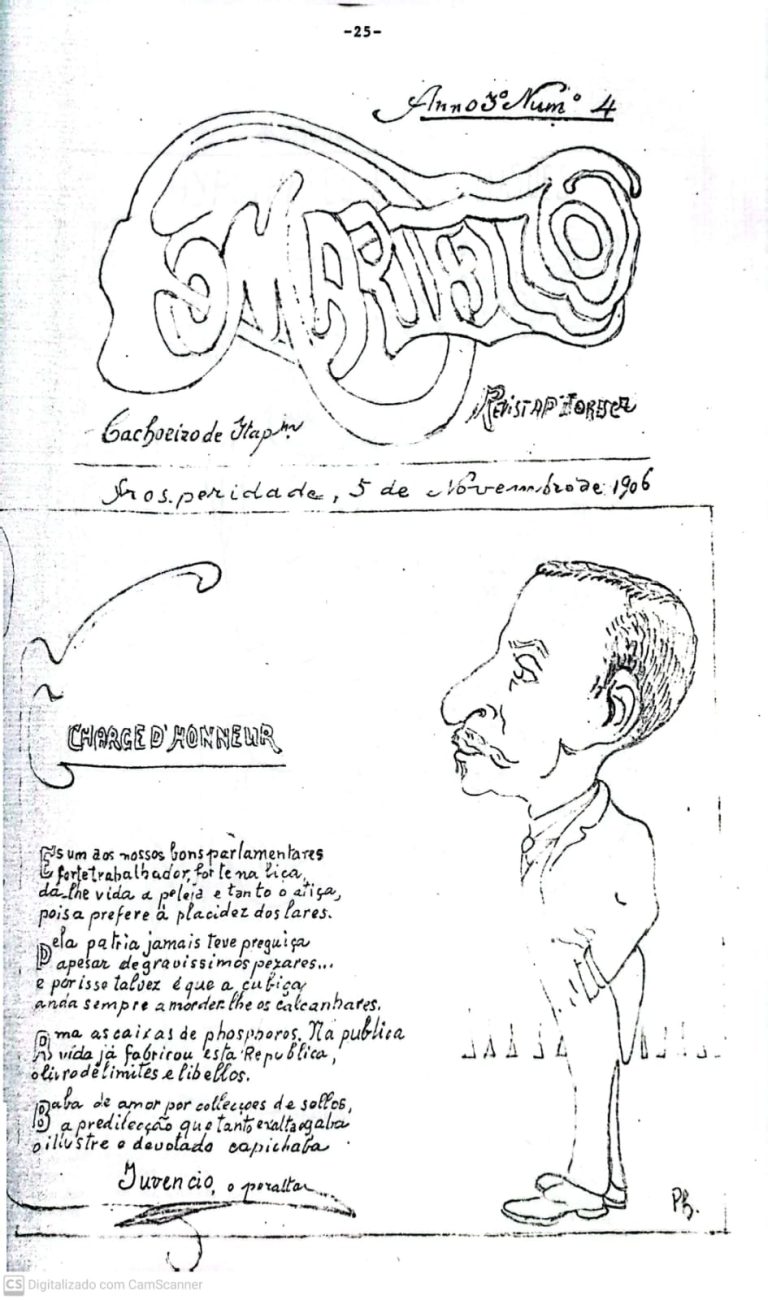 -25-
Anno 3º Numº 4
O MARTELLO
Cachoeiro de Itapm
REVISTA
Prosperidade, 5 de Novembro de 1906
CHARGE D'HONNEUR
Es um dos nossos bons parlamentares
forte trabalhador, forte na liça,
dá-lhe vida a peleja e tanto o atiça,
pois a prefere á placidez dos lares.
Pela patria jamais teve preguiça
apesar de gravissimos pezares...
e por isso talvez é que a cubiça
anda sempre a morder-lhe os calcanhares.
Ama as caixas de phosphoros. Na publica
vida já fabricou esta Republica,
o livro de limites e libellos.
Baba de amor por collecções de sellos,
a predilecção que tanto exalta e gaba
o illustre e devotado capichaba
Juvencio, o peralta
Ph.
CS Digitalizado com CamScanner